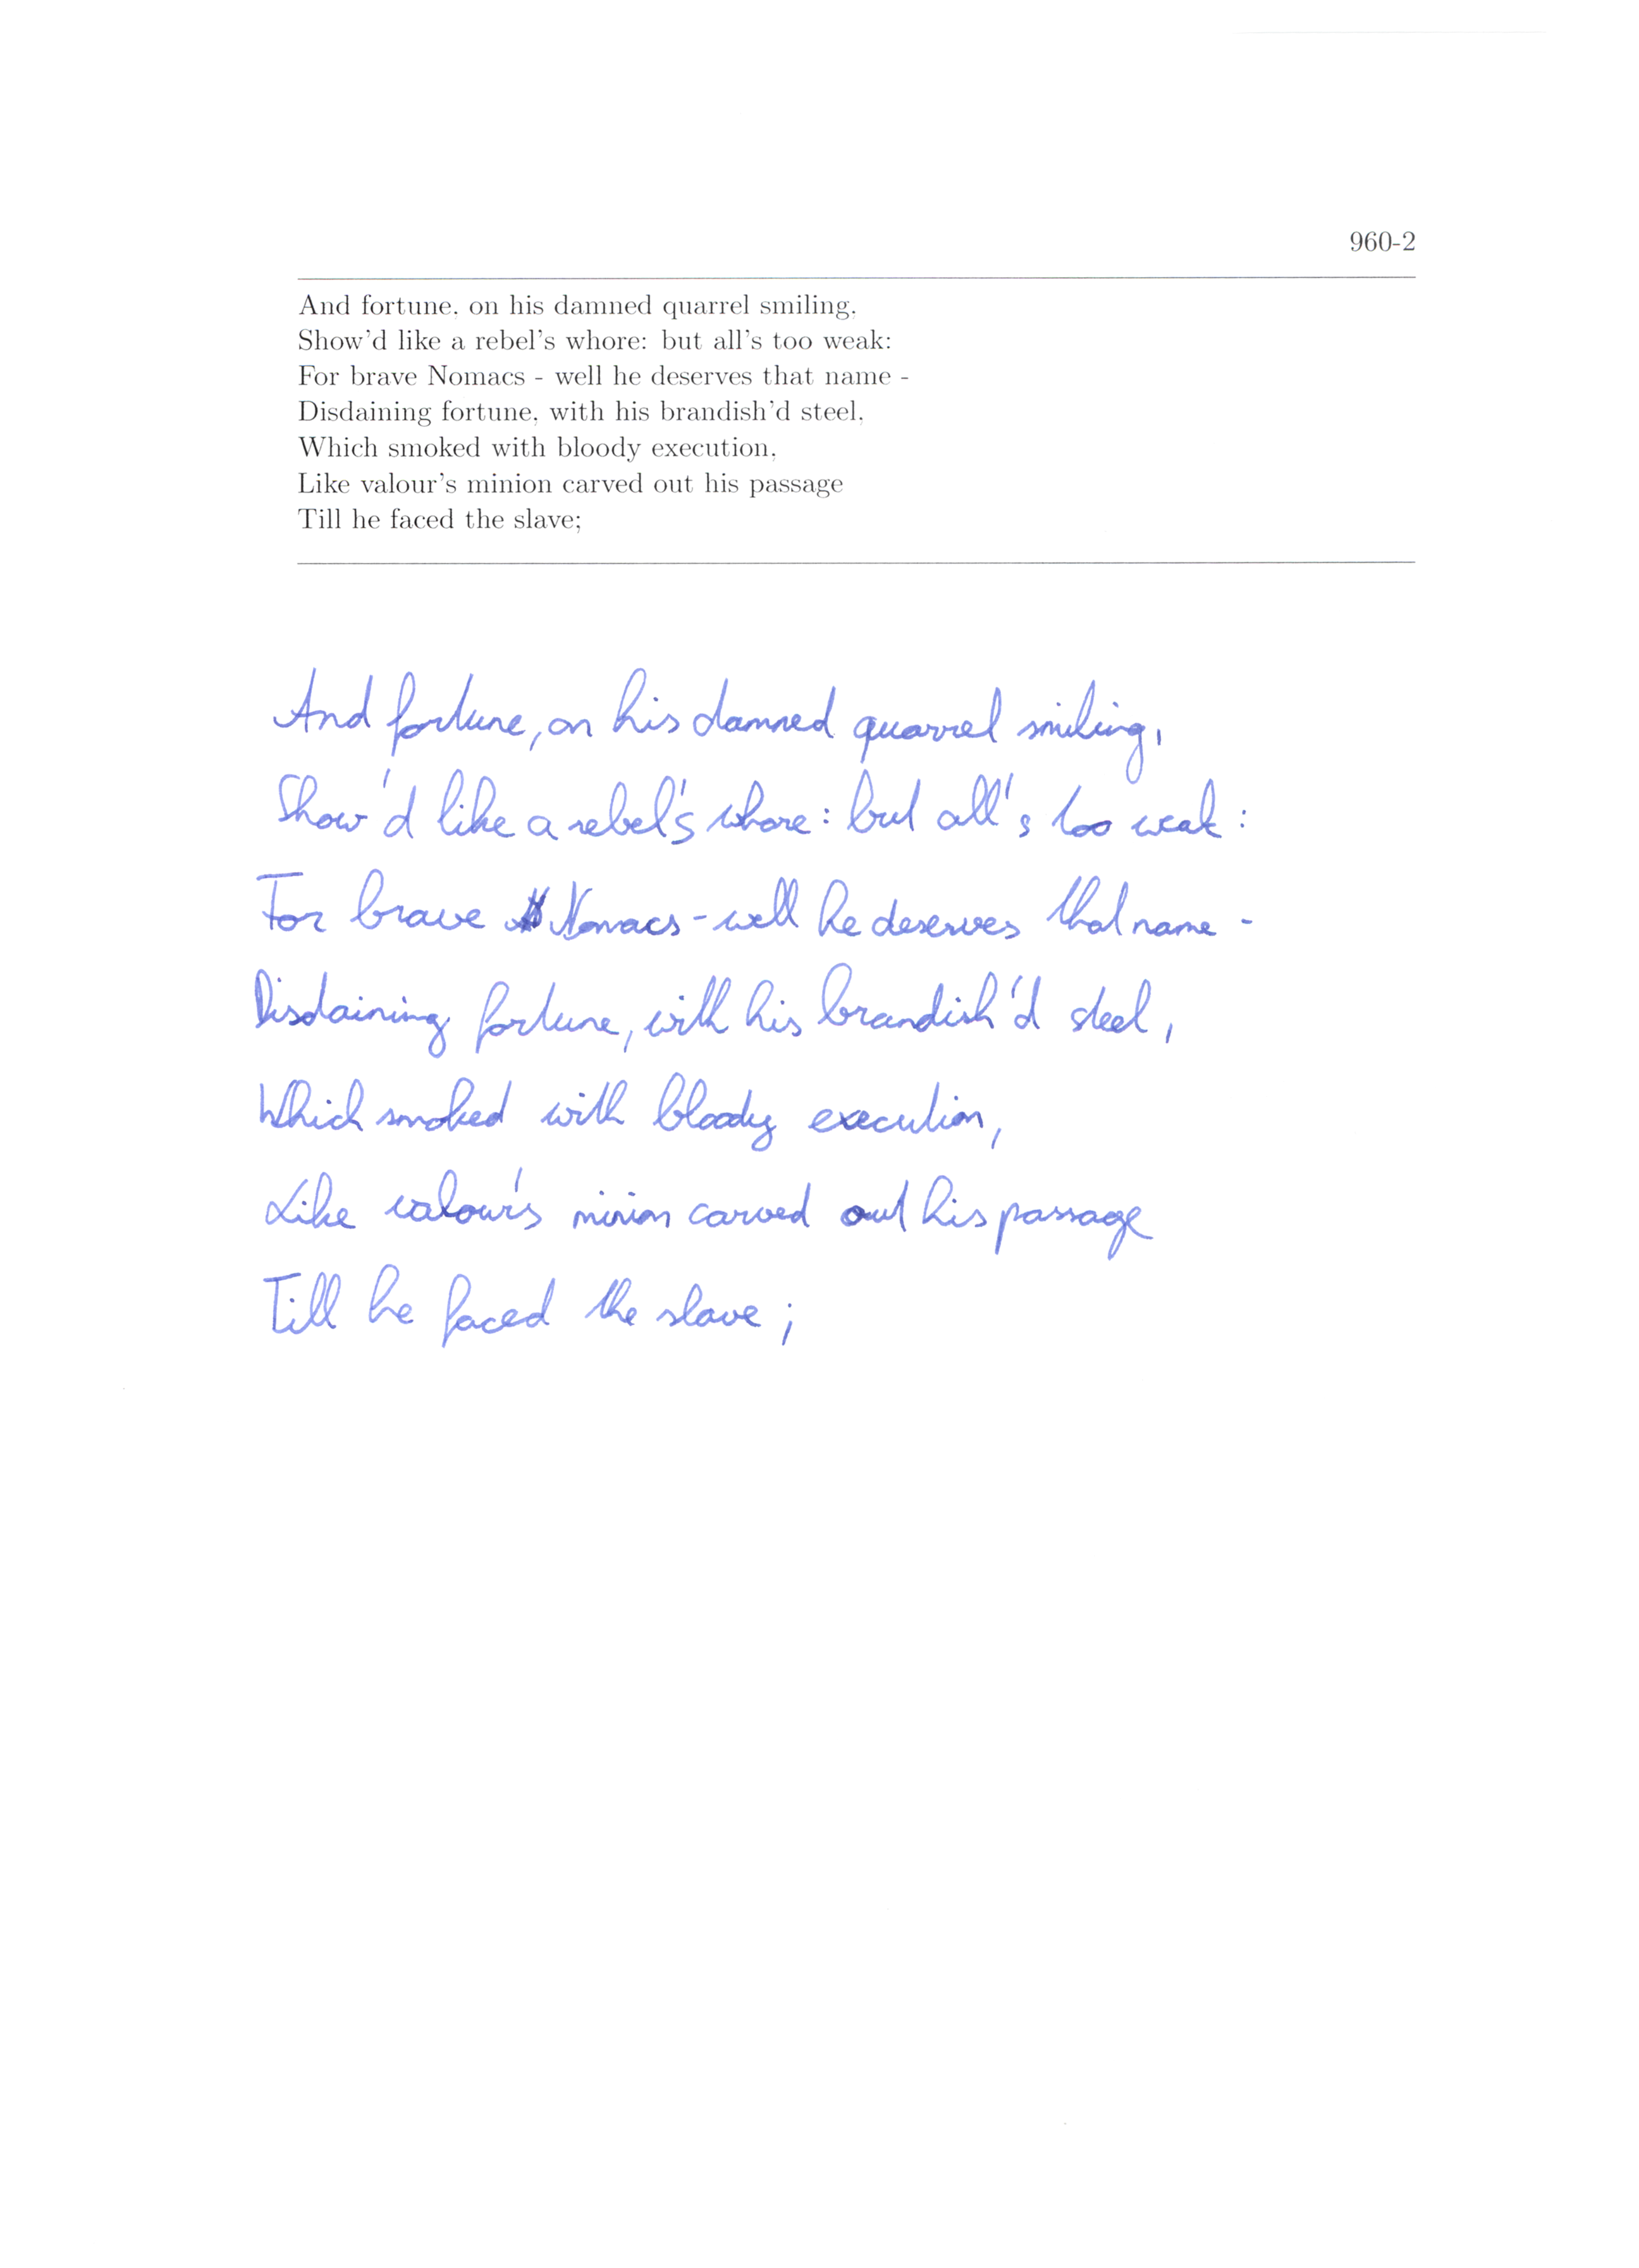 960-2
And fortune, on his damned quarrel smiling,
Show'd like a rebel's whore: but all's too weak:
For brave Nomacs - well he deserves that name -
Disdaining fortune, with his brandish'd steel,
Which smoked with bloody execution,
Like valour's minion carved out his passage
Till he faced the slave;
And fortune, on his damned quarrel smiling,
Show'd like a rebel's whore: but all's too weak:
For brave Nomacs - well he deserves that name -
Disdaining fortune, with his brandish'd steel,
Which smoked with bloody execution,
Like valour's minion carved out his passage
Till he faced the slave;